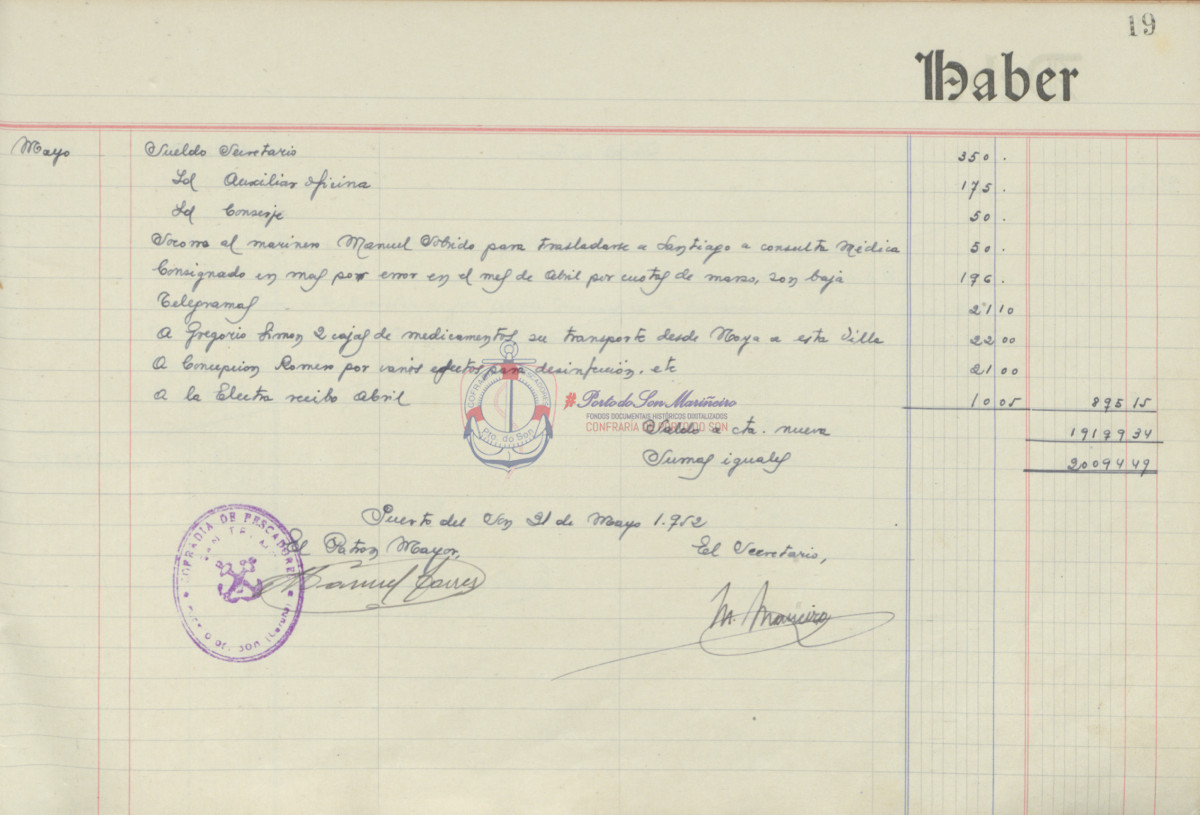 19
Haber
Mayo Sueldo Secretario 350 .
Id Auxiliar oficina 175 .
Id Conserje 50 .
Socorro al marinero Manuel para trasladarse a Santiago a consulta Médica 50 .
Consignado en mas por error en el mes de Abril por cuotas de marzo, son baja 196 .
Telegramas 21 10
A Gregorio Simon 2 cajas de medicamentos, su transporte desde Noya a esta Villa 22 00
A Concepcion Romero por varios efectos para desinfeción, etc 21 00
A la Electra recibo Abril 10 05 895 15
Saldo a cta. nueva 19199 34
Sumas iguales 20094 49
Puerto del Son 31 de Mayo 1.952
El Patron Mayor, El Secretario,
Manuel Torres M. Maneiro
COFRADIA DE PESCADORES
COFRADÍA PESCADORES
Pto. do Son
#Porto do Son Mariñeiro
FONDOS DOCUMENTAIS HISTÓRICOS DIXITALIZADOS
CONFRARÍA DE PORTO DO SON